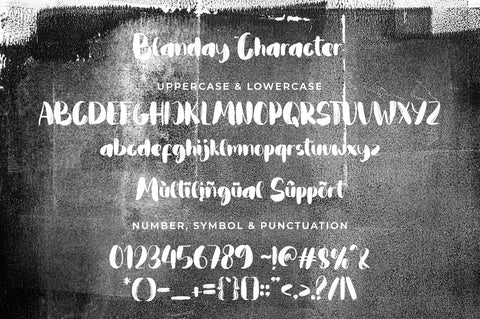 Blanday Character
UPPERCASE & LOWERCASE
ABCDEFGHIJKLMNOPQRSTUVWXYZ
abcdefghijklmnopqrstuvwxyz
Mùltilîñgüal Sûppört
NUMBER, SYMBOL & PUNCTUATION
0123456789 ~!@#$%^&
*()-_+={}[]:;"<,>.?/|\